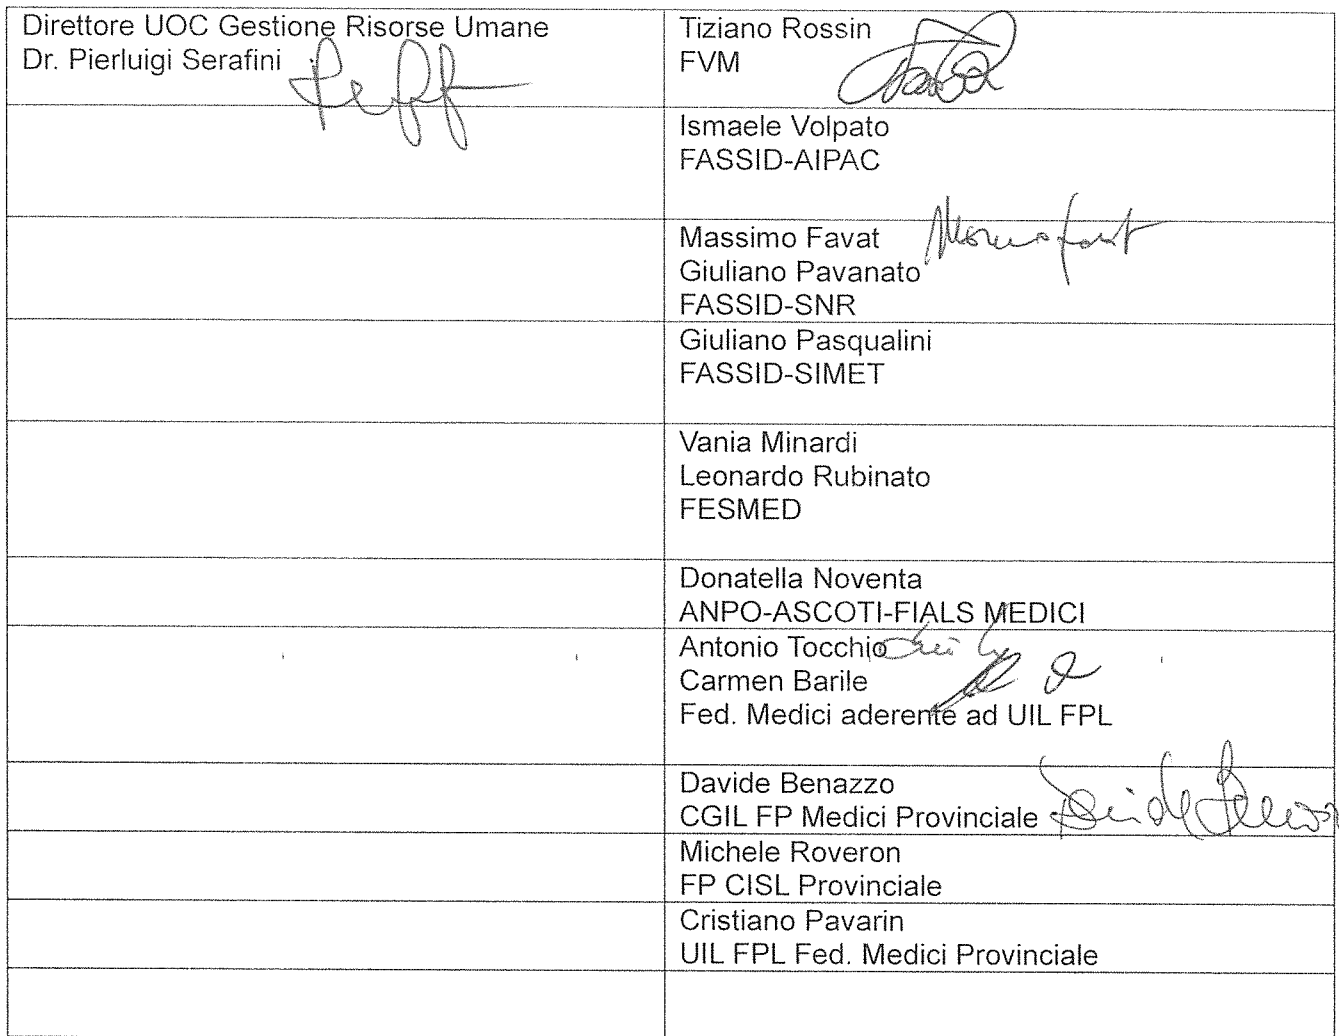 Direttore UOC Gestione Risorse Umane
Dr. Pierluigi Serafini
Tiziano Rossin
FVM
Ismaele Volpato
FASSID-AIPAC
Massimo Favat
Giuliano Pavanato
FASSID-SNR
Giuliano Pasqualini
FASSID-SIMET
Vania Minardi
Leonardo Rubinato
FESMED
Donatella Noventa
ANPO-ASCOTI-FIALS MEDICI
Antonio Tocchio
Carmen Barile
Fed. Medici aderente ad UIL FPL
Davide Benazzo
CGIL FP Medici Provinciale
Michele Roveron
FP CISL Provinciale
Cristiano Pavarin
UIL FPL Fed. Medici Provinciale